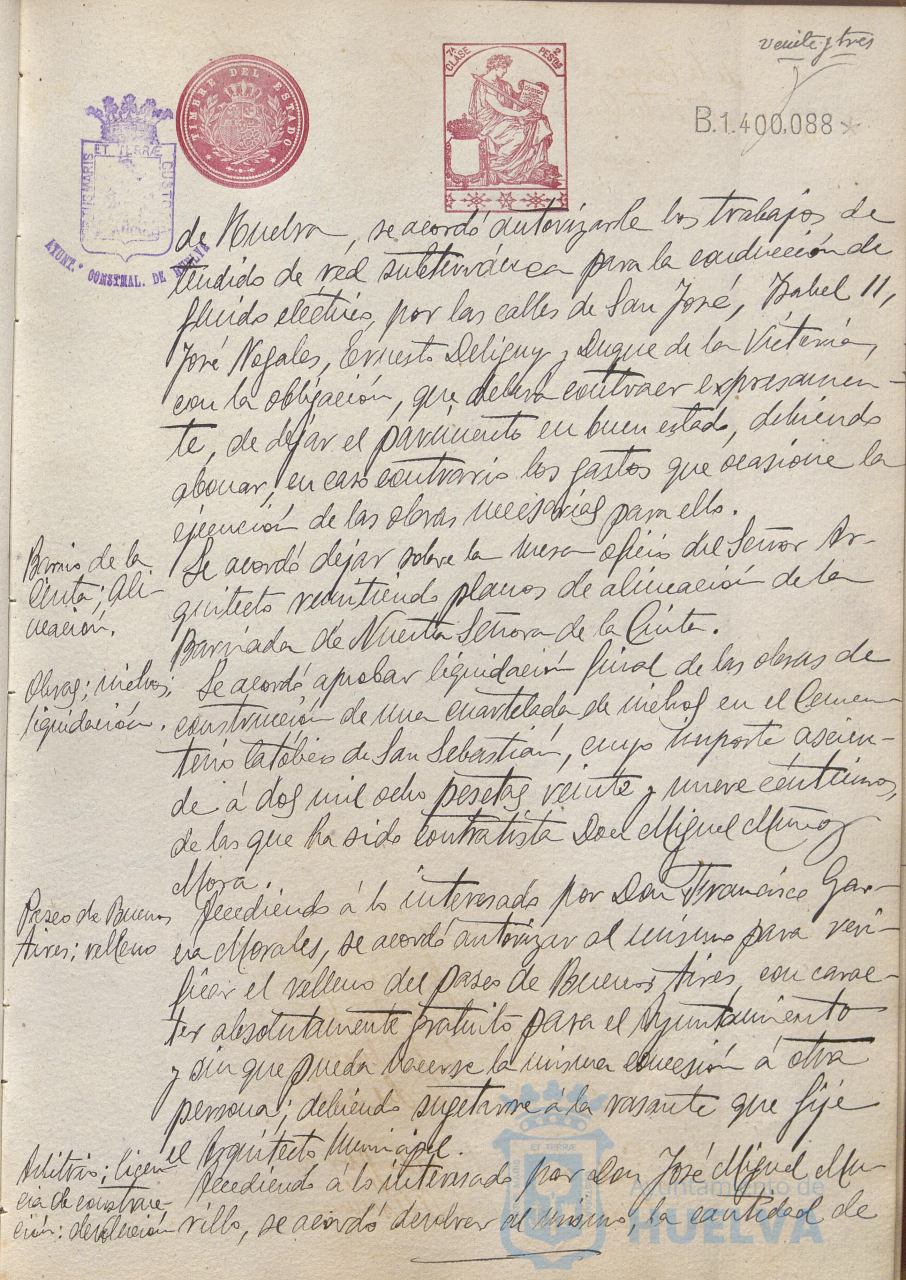 veinte y tres
7ª CLASE 2 PESETAS
TIMBRE DEL ESTADO
B.1.400.088
PORTUS MARIS ET TERRÆ CUSTODIA
AYUNT.º CONSTNAL. DE HUELVA
de Huelva, se acordó autorizarle los trabajos de
tendido de red subterránea para la conducción de
fluido eléctrico, por las calles de San José, Isabel II,
José Nogales, Ernesto Deligny y Duque de la Victoria,
con la obligación, que deberá contraer expresamen-
te, de dejar el pavimento en buen estado, debiendo
abonar, en caso contrario los gastos que ocasione la
ejecución de las obras necesarias para ello.
Barrio de la
Cinta; Ali-
neación.
Se acordó dejar sobre la mesa oficio del Señor Ar-
quitecto remitiendo planos de alineación de la
Barriada de Nuestra Señora de la Cinta.
Obras; nichos;
liquidación.
Se acordó aprobar liquidación final de las obras de
construcción de una cuartelada de nichos en el Cemen-
terio Católico de San Sebastián, cuyo importe ascien-
de á dos mil ocho pesetas veinte y nueve céntimos,
de las que ha sido contratista Don Miguel Muñoz
Mora.
Paseo de Buenos
Aires; relleno
Accediendo á lo interesado por Don Francisco Gar-
cia Morales, se acordó autorizar al mismo para veri-
ficar el relleno del paseo de Buenos Aires, con carac-
ter absolutamente gratuito para el Ayuntamiento
y sin que pueda hacerse la misma concesión á otra
persona; debiendo sugetarse á la rasante que fije
el Arquitecto Municipal.
Arbitrio; licen-
cia de construc-
ción; devolución
Accediendo á lo interesado por Don José Miguel Mu-
rillo, se acordó devolver al mismo, la cantidad de
Ayuntamiento de
HUELVA